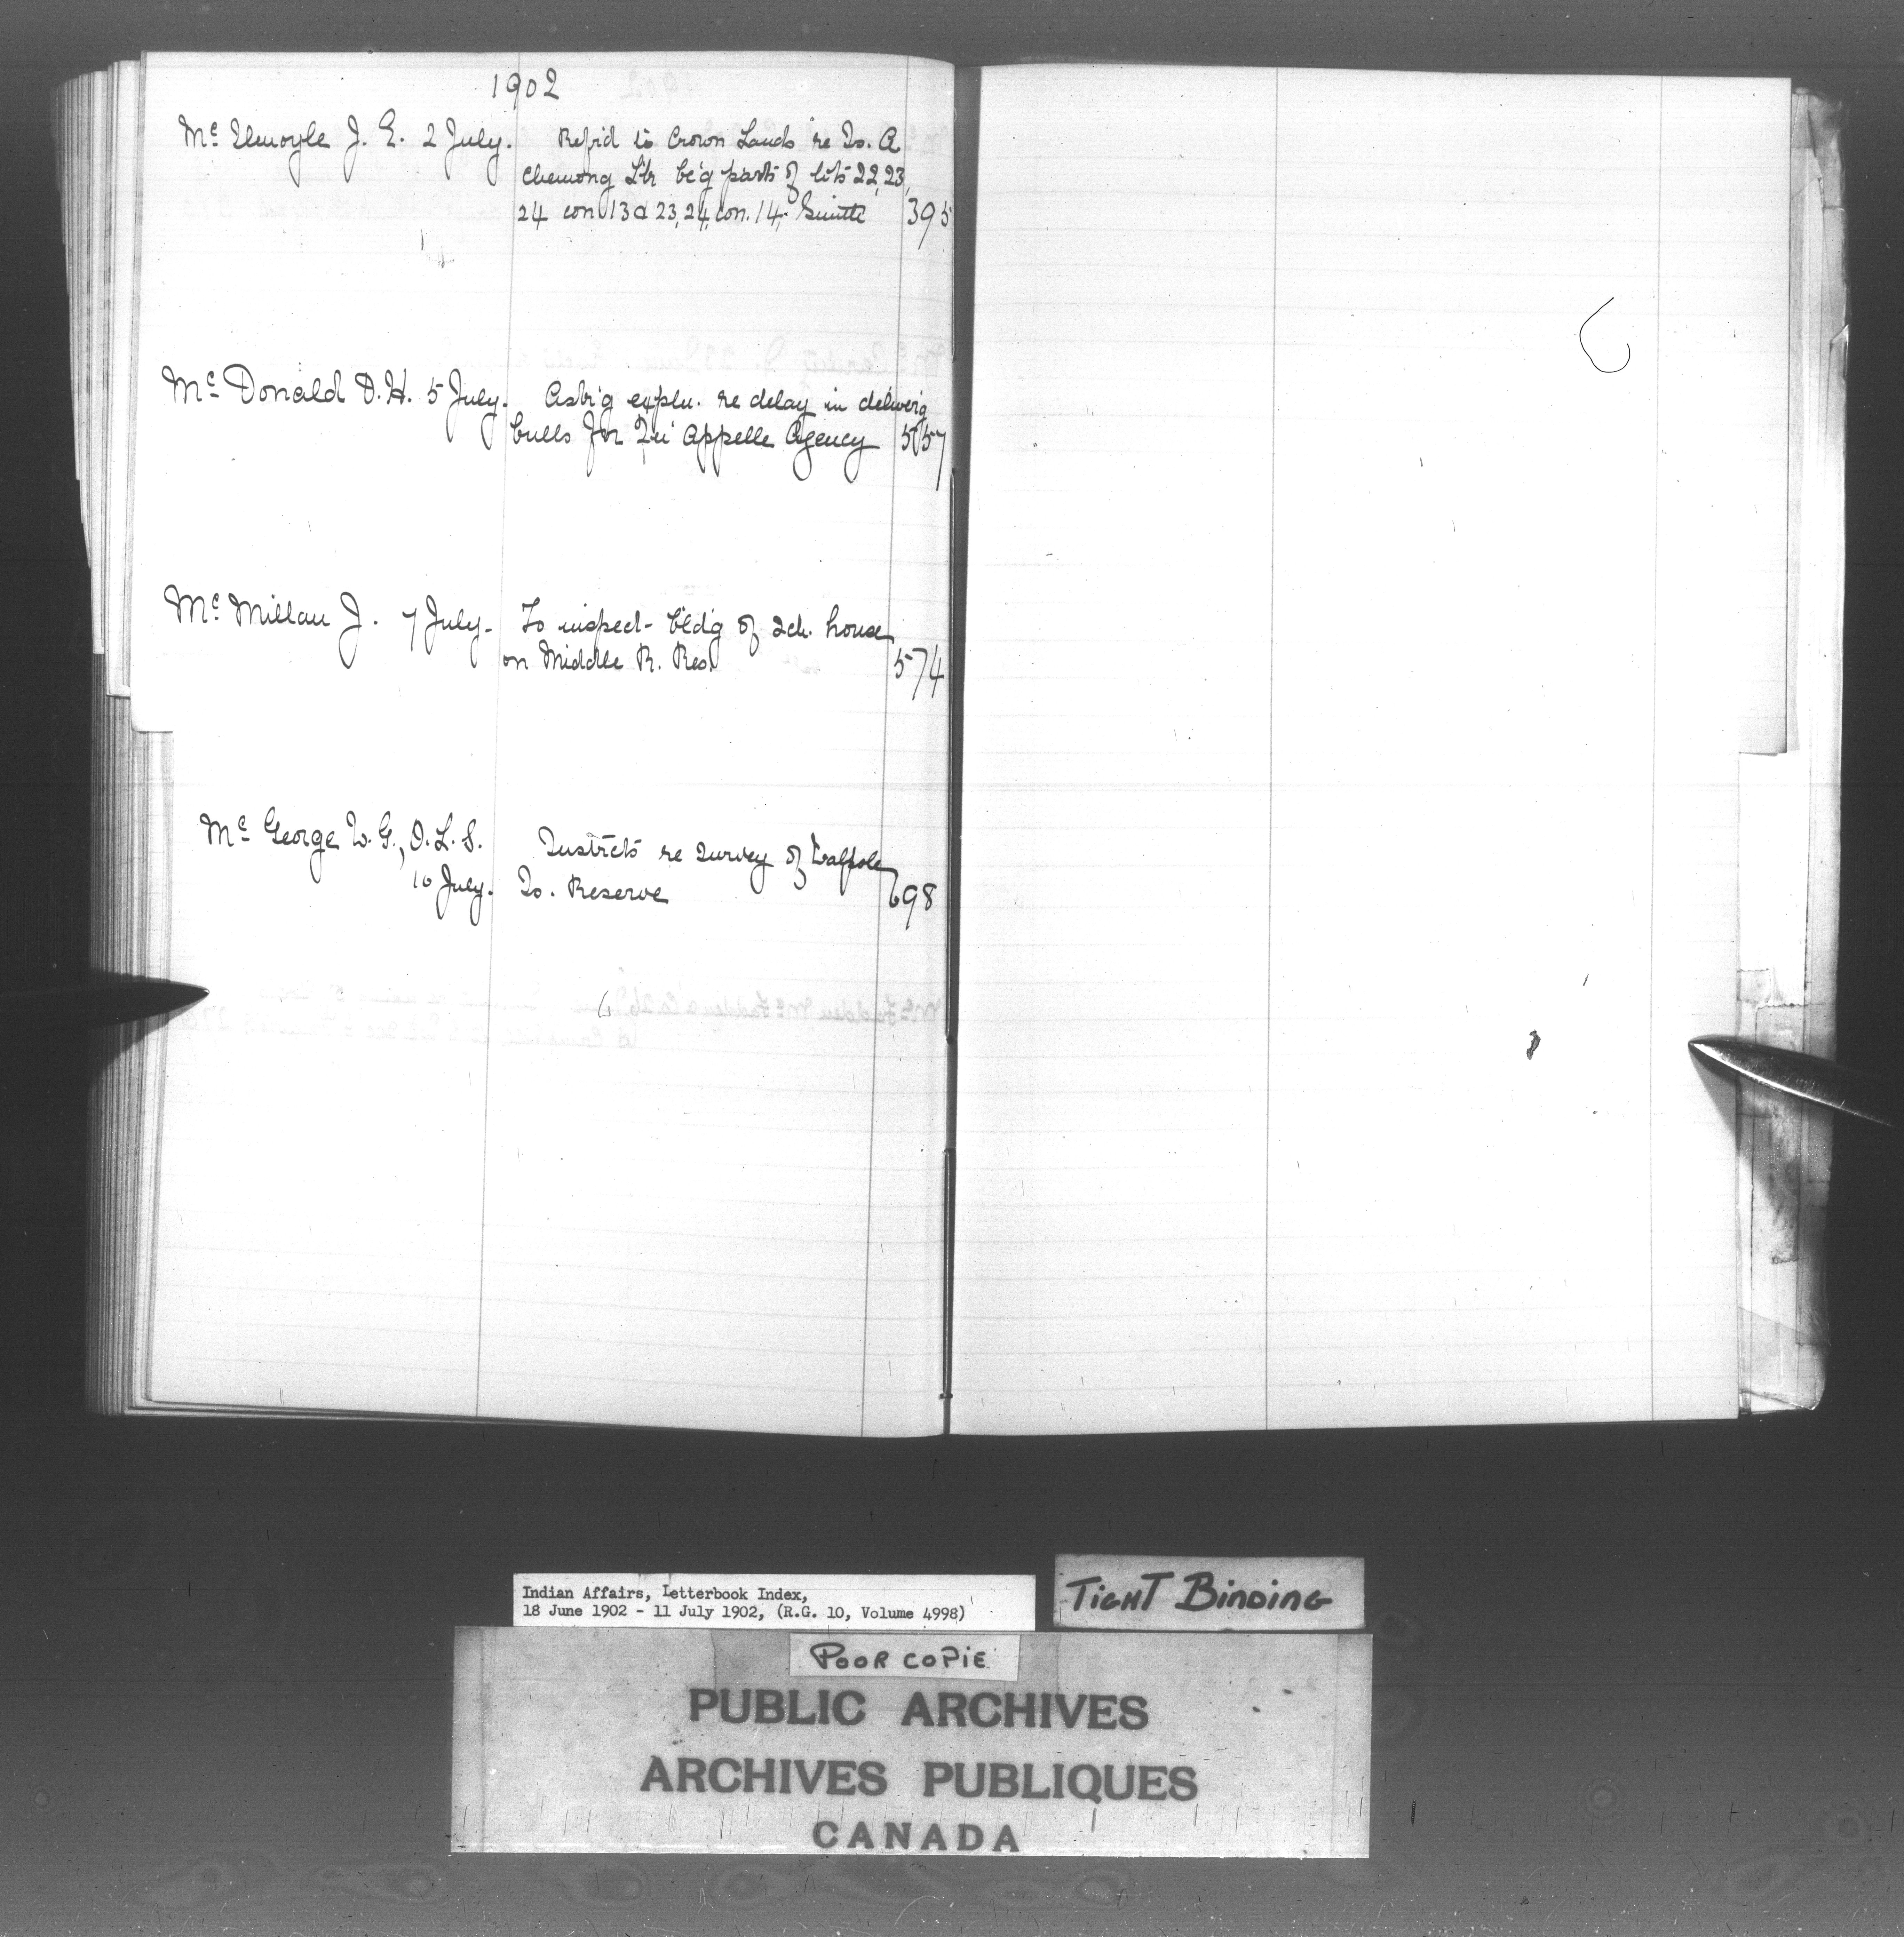 1902
Mc Ilmoyle J. E. 2 July. Ref'd to Crown Lands re Is. A
Chemong L'k be'g parts of lots 22, 23,
24 con 13 & 23, 24, con. 14, Smith 395
Mc Donald D. H. 5 July. Ask'g expln. re delay in deliver'g
bulls for Qu'Appelle Agency 557
Mc Millan J. 7 July. To inspect bld'g of sch. house
on Middle R. Res. 574
Mc George W. G., O. L. S. Instructs re survey of Walpole
10 July. Is. Reserve 698
Indian Affairs, Letterbook Index,
18 June 1902 - 11 July 1902, (R.G. 10, Volume 4998)
TIGHT BINDING
POOR COPIE
PUBLIC ARCHIVES
ARCHIVES PUBLIQUES
CANADA